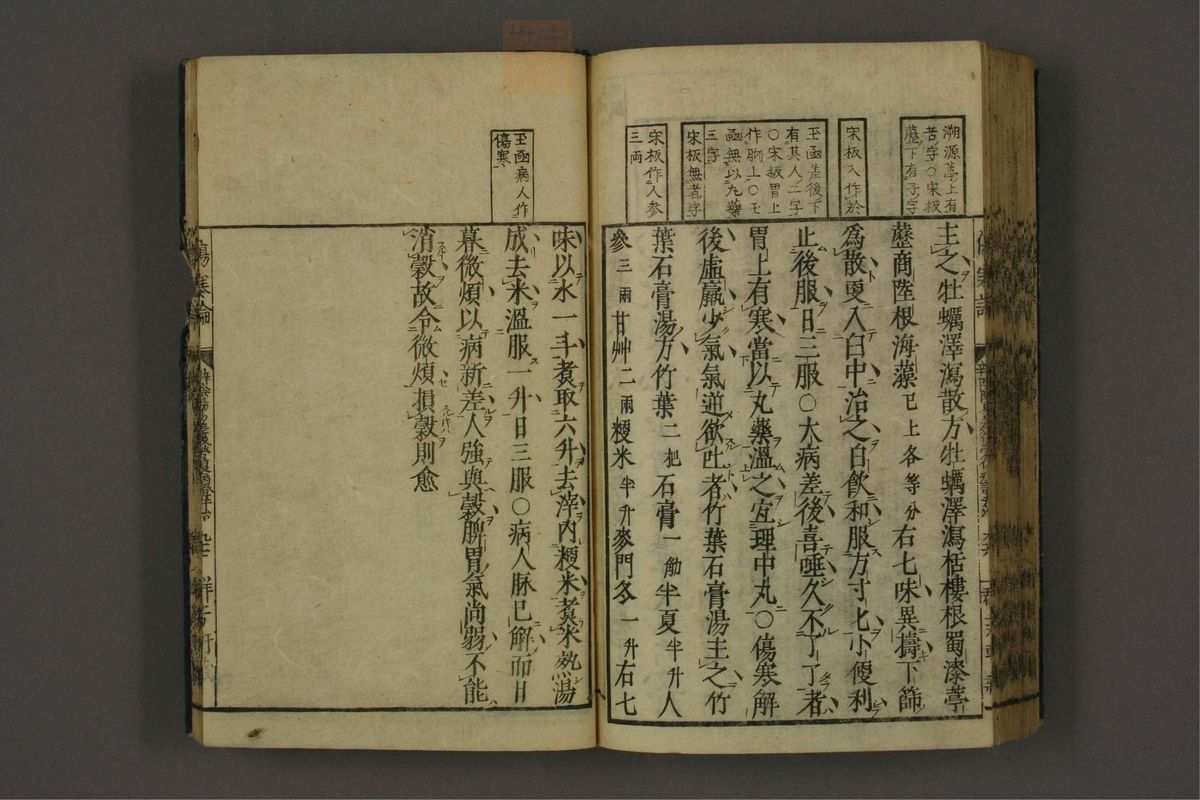 溯源葶上有
苦字○宋板
藶下有子字
宋板入作於
玉函差後下
有其人二字
○宋板胃上
作胸上○玉
函無以丸藥
三字
宋板無者字
宋板作人参
三両
主之牡蠣澤瀉散方牡蠣澤瀉栝樓根蜀漆葶
藶商陸根海藻已上各等分右七味異擣下篩
為散更入臼中治之白飲和服方寸匕小便利
止後服日三服○大病差後喜唾久不了了者
胃上有寒當以丸藥溫之宜理中丸○傷寒解
後虛羸少氣氣逆欲吐者竹葉石膏湯主之竹
葉石膏湯方竹葉二把石膏一觔半夏半升人
參三兩甘艸二兩粳米半升麥門冬一升右七
玉函病人作
傷寒
味以水一斗煮取六升去滓內粳米煮米熟湯
成去米溫服一升日三服○病人脉已解而日
暮微煩以病新差人強與穀脾胃氣尚弱不能
消穀故令微煩損穀則愈
傷寒論